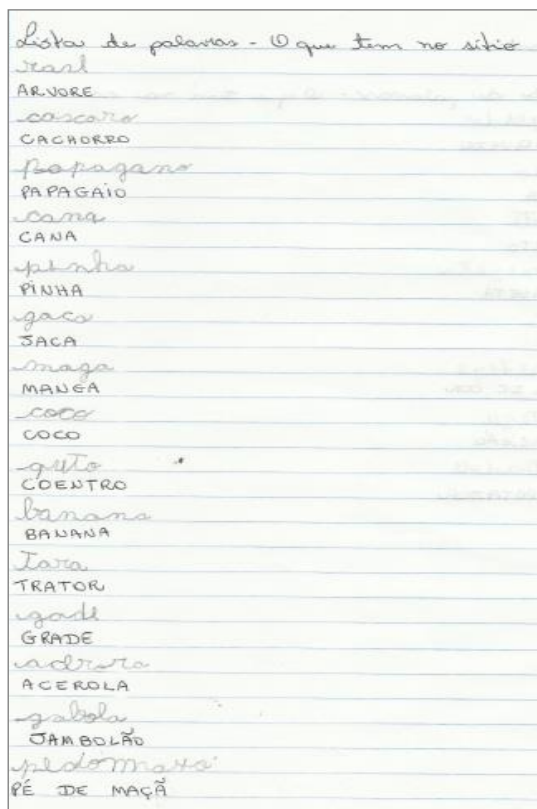 Lista de palavras - O que tem no sítio
rasl
ARVORE
cascaro
CACHORRO
papagano
PAPAGAIO
cana
CANA
pinha
PINHA
gaca
JACA
maga
MANGA
coco
COCO
quto
COENTRO
banana
BANANA
Tara
TRATOR
gade
GRADE
adrora
ACEROLA
gabola
JAMBOLÃO
pedomaxa
PÉ DE MAÇÃ